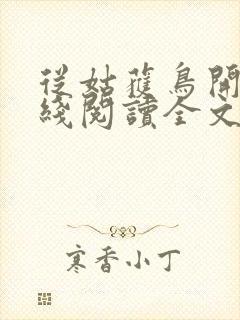 從姑獲鳥開
綫閱讀全文
寒香小丁